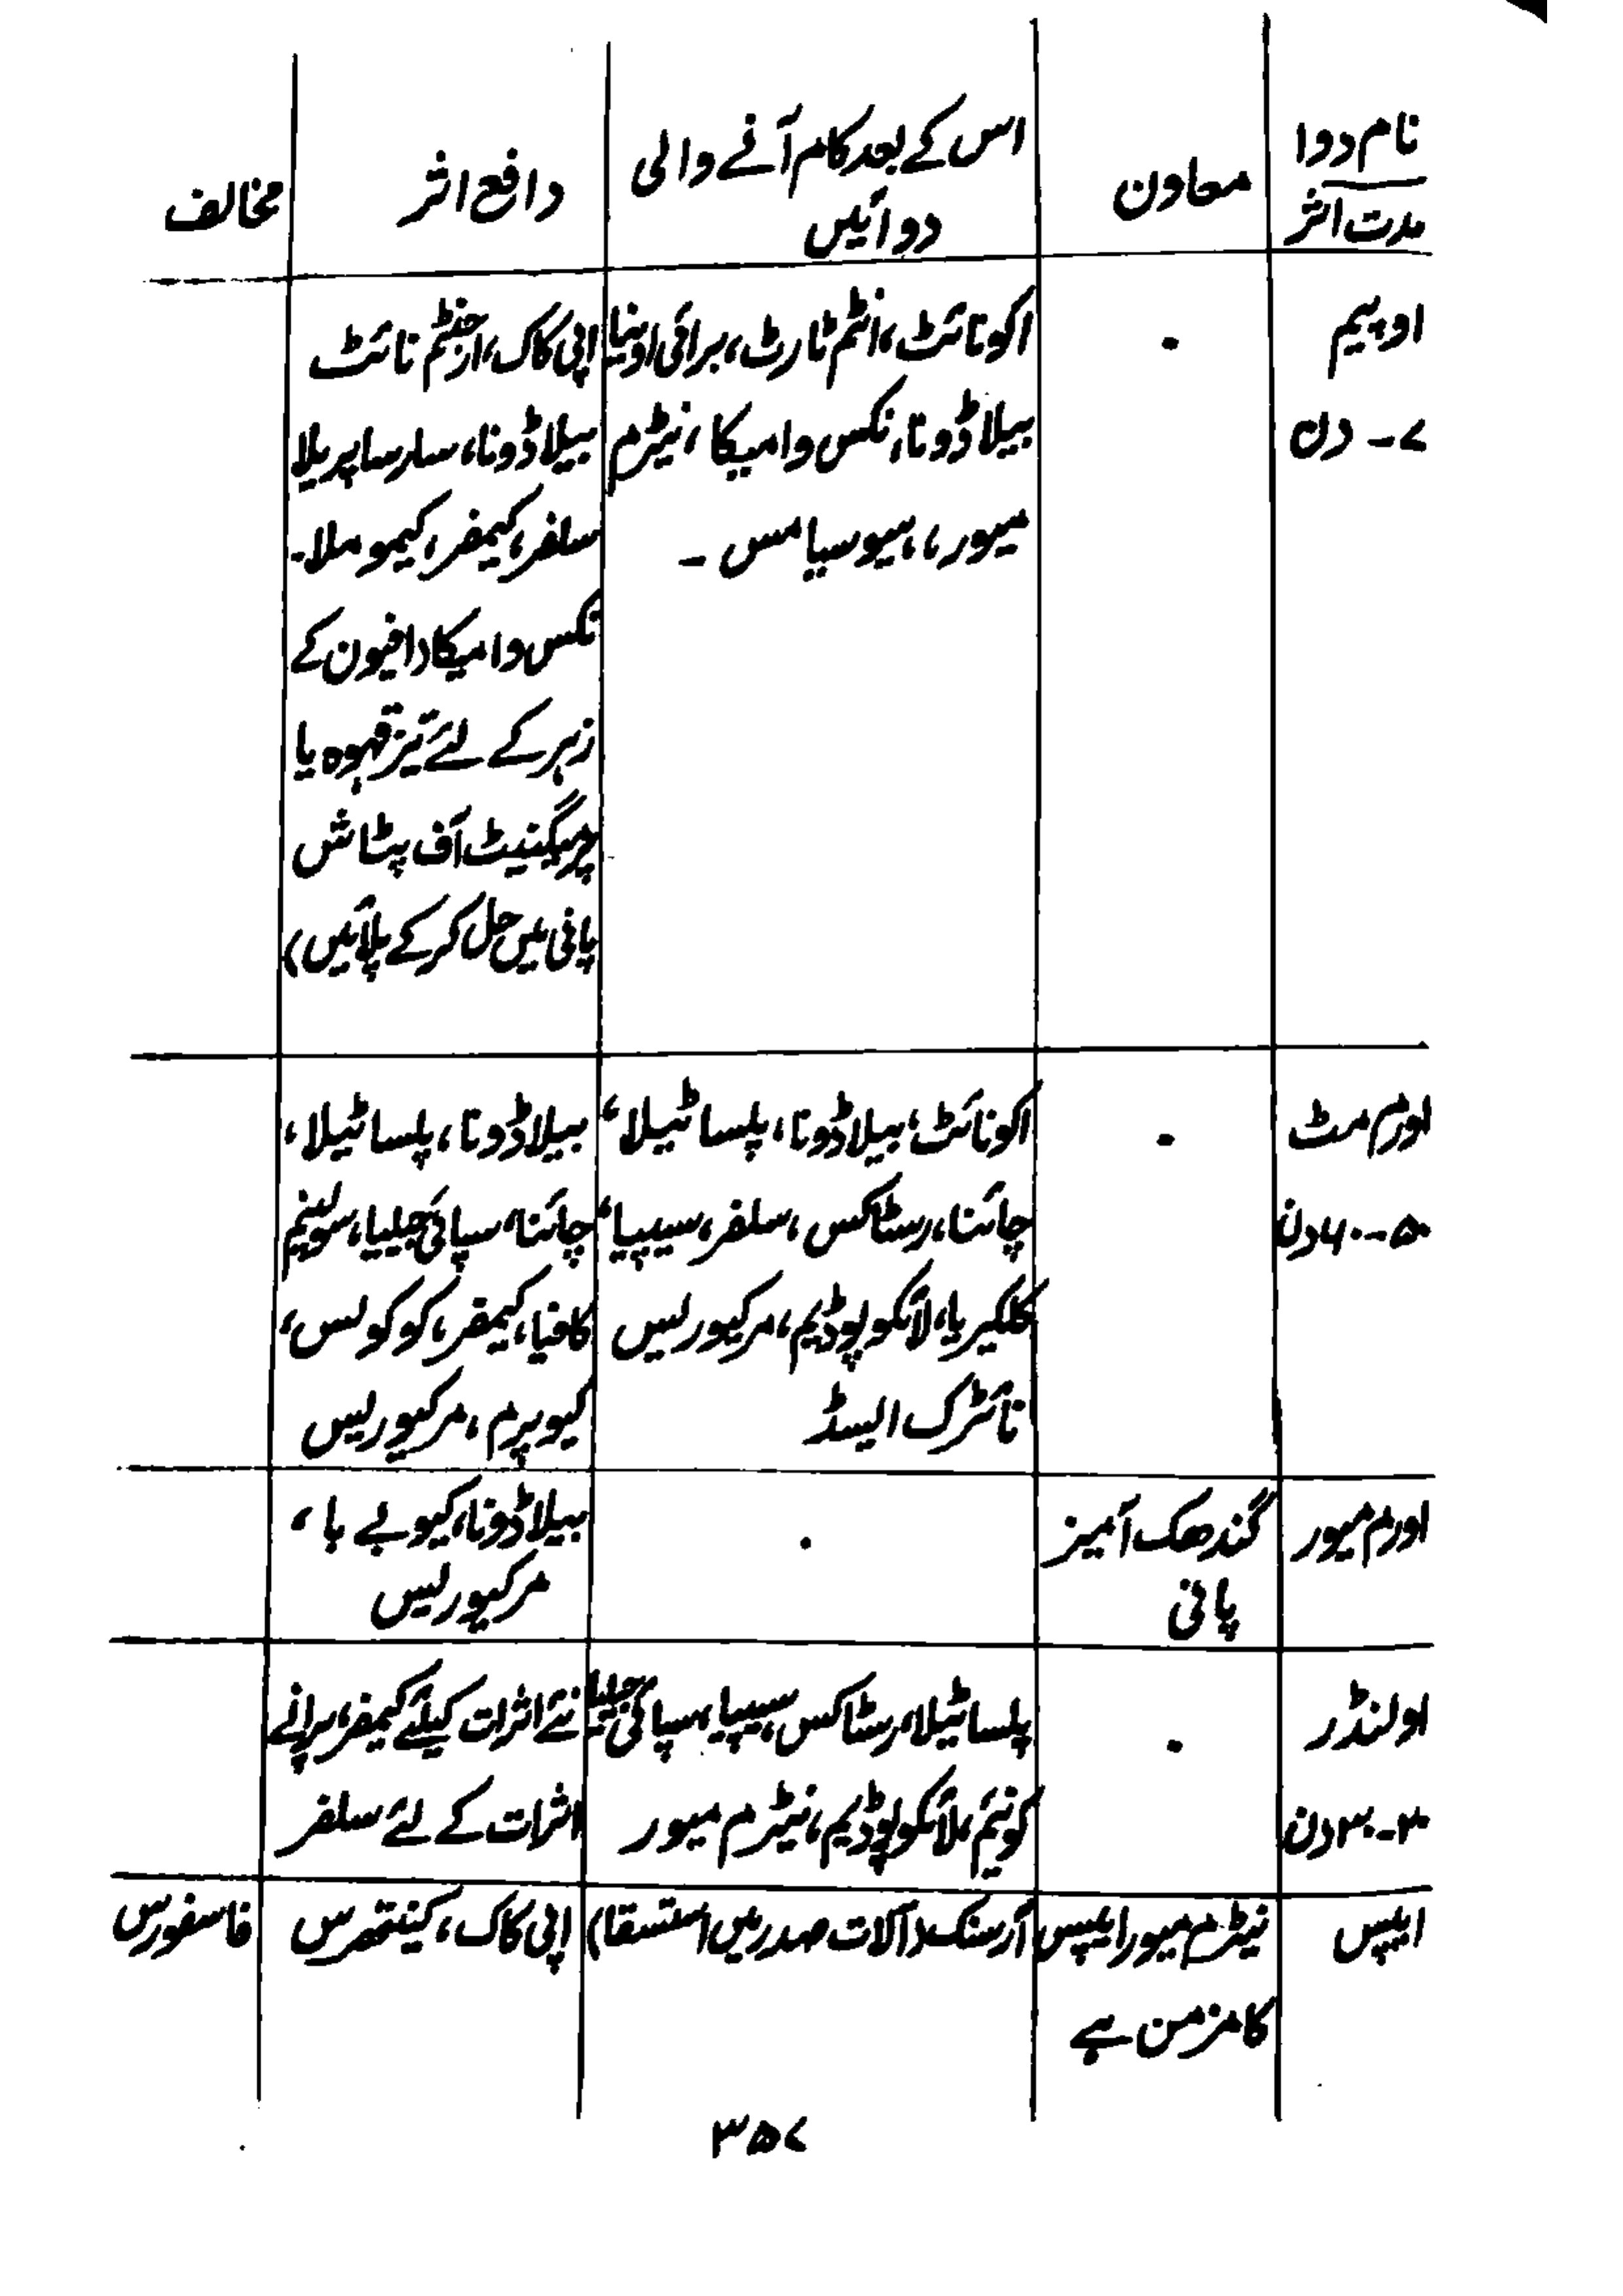 نام دوا
مدت اثر
معاون
اس کے بعد کام آنے والی
دوائیں
دافع اثر
مخالف
اوپیم
۷- دن
۰
اکونائٹ، انٹم ٹارٹ، برائی اونیا
بیلاڈونا، نکس وامیکا، نیٹرم
میور،، ہیوسیامس -
اپی کاک، ارجنٹم نائٹ
بیلاڈونا، سارساپریلا
سلفر، کیمفر، کیموملا-
نکس وامیکا (افیون کے
زہر کے لئے تیز قہوہ یا
پرمیگنیٹ آف پٹاش
پانی میں حل کرکے پلائیں)
اورم مٹ
۵۰-۶۰ دن
۰
اکونائٹ، بیلاڈونا، پلساٹیلا،
چائنا، رسٹاکس، سلفر، سیپیا،
کلکیریا، لائکوپوڈیم، مرکیوریس
نائٹرک ایسڈ
بیلاڈونا، پلساٹیلا،
چائنا، سپائی جیلیا، سولینم
کافیا، کیمفر، کوکولس،
کیوپرم، مرکیوریس
اورم میور
گندھک آمیز
پانی
۰
بیلاڈونا، کیوبے با،
مرکیوریس
اولنڈر
۲۰-۳۰ دن
۰
پلساٹیلا، رسٹاکس، سیپیا، سپائی جیلیا
کونیم، لائکوپوڈیم، نیٹرم میور
نئے اثرات کیلئے کیمفر، پرانے
اثرات کے لئے سلفر
ایپس
نیٹرم میور ایپس
کا مزمن ہے
آرسنک (آلات صدر میں استسقا)
اپی کاک، کینتھرس
فاسفورس
۳۵۷